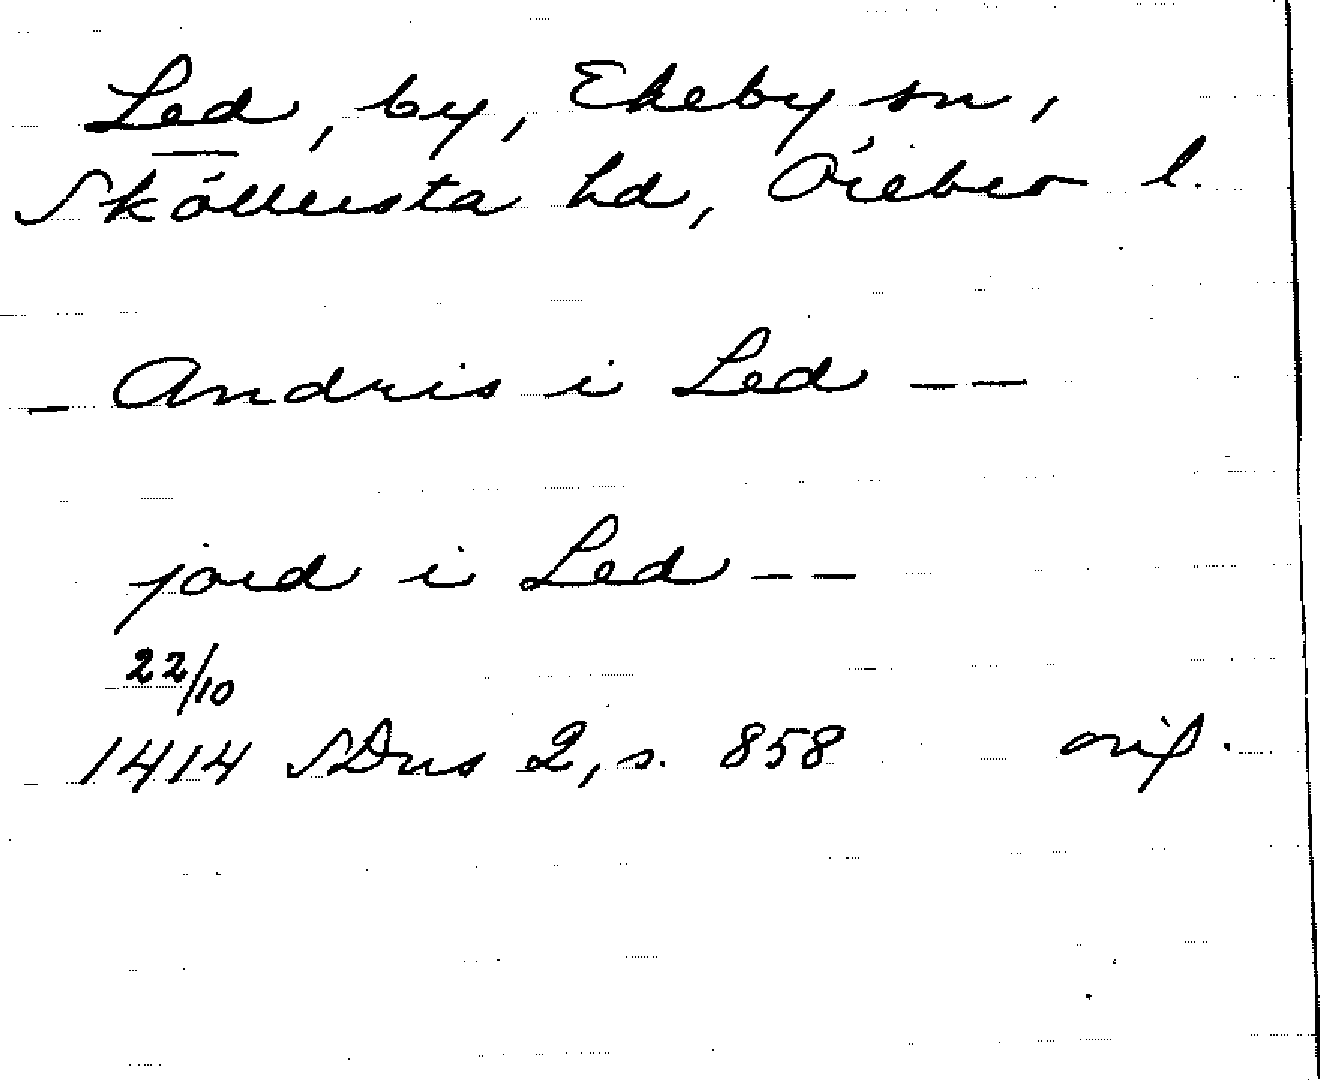 Led, by, Ekeby sn,
Sköllersta hd, Örebro l.
– Andris i Led – –
jord i Led – –
22/10
1414 SDns 2, s. 858 orig.